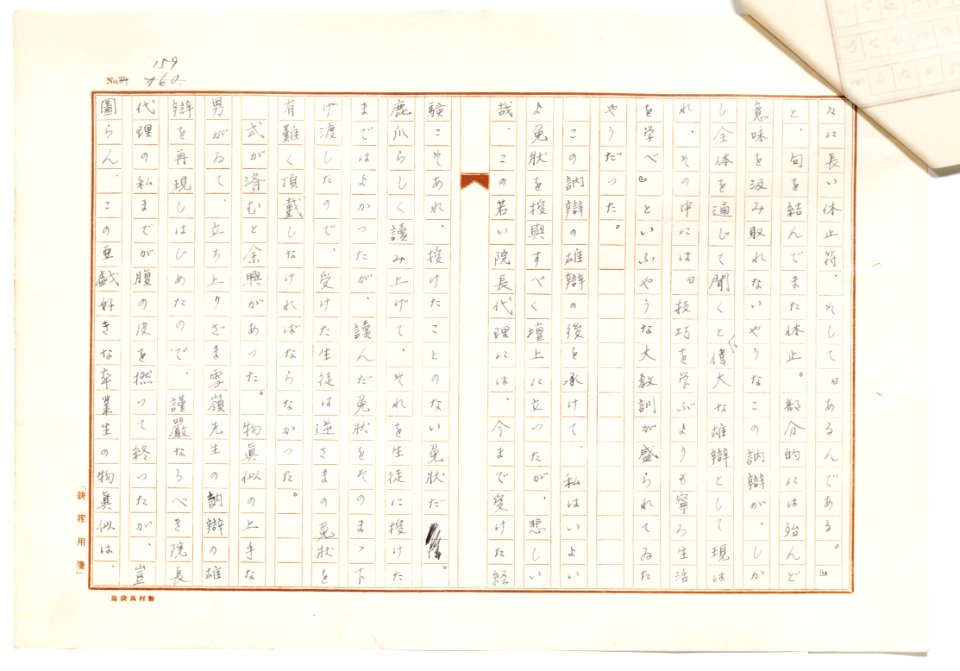 159
No.
160
たに長い休止符、そして『あるんである。』
と、句を結んでまた休止。部分的には殆んど
意味を汲み取れないやうなこの訥辯が、しか
し全体を通じて聞くと偉大な雄辯として現は
れ、その中には『技巧を学ぶよりも寧ろ生活
を学べ』といふやうな大教訓が盛られてゐた
やうだった。
この訥辯の雄辯の後を承けて、私はいよい
よ免狀を授與すべく壇上に立つたが、悲しい
哉、この若い院長代理には、今まで受けた経
験こそあれ、授けたことのない免狀だ。
鹿爪らしく讀み上げて、それを生徒に授けた
まではよかつたが、讀んだ免狀をそのまゝ下
げ渡したので、受けた生徒は逆さまの免狀を
有難く頂戴しなければならなかつた。
式が濟むと余興があつた。物眞似の上手な
男がゐて、立ち上りざま雪嶺先生の訥辯の雄
辯を再現しはじめたので、謹嚴なるべき院長
代理の私までが腹の皮を撚つて終つたが、豈
圖らん、この亜戯好きな卒業生の物眞似は、